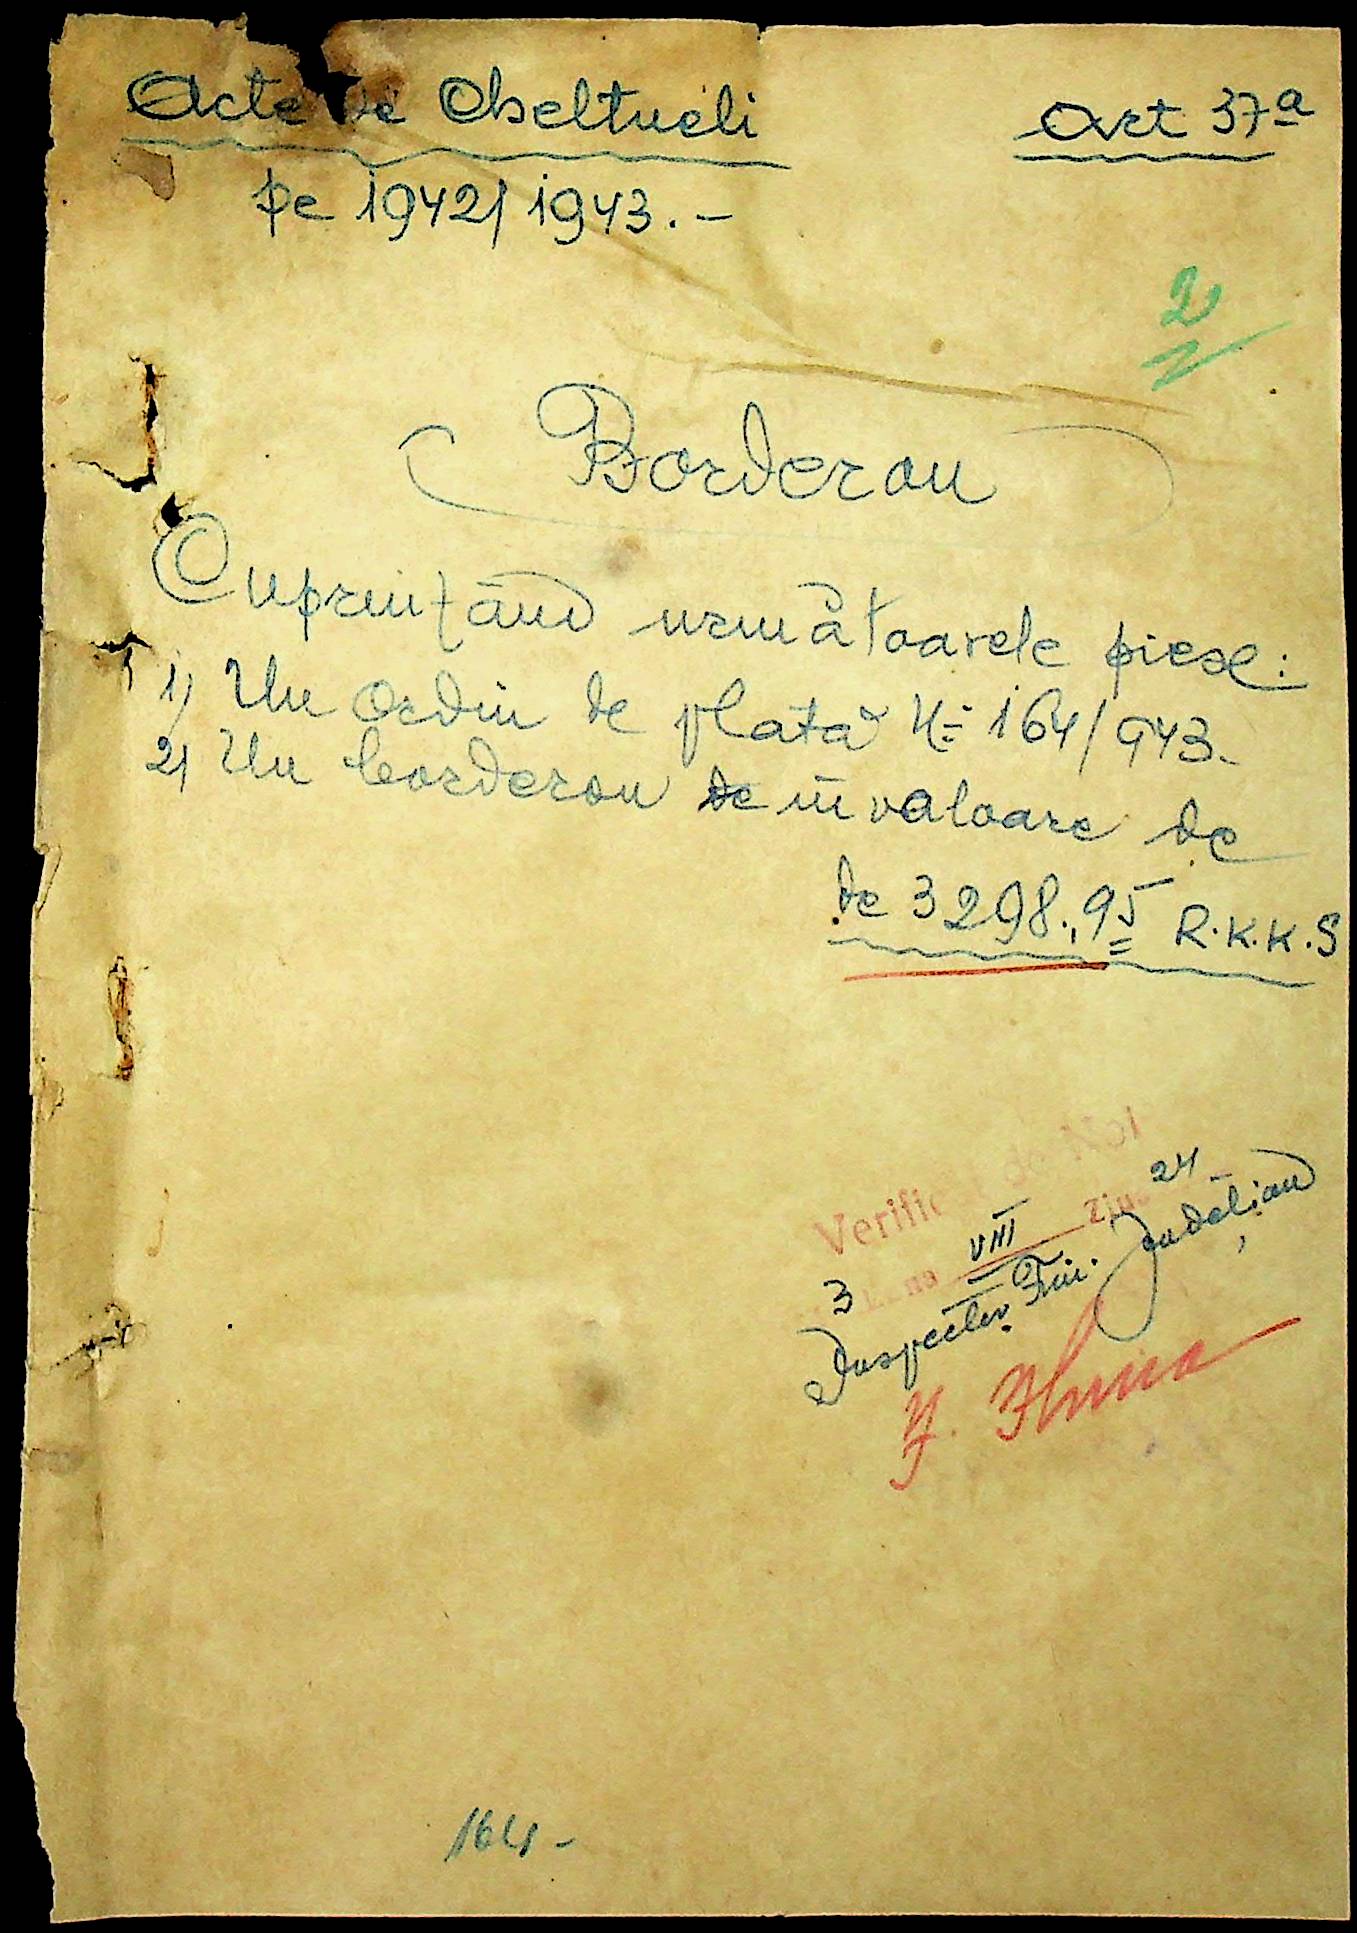 Acte de Cheltueli
Art 37a
pe 1942/1943.-
2
Borderou
Cuprințând următoarele piese:
1) Un Ordin de plată No 164/943.-
2) Un borderou de in valoare de
de 3298.,95 R.K.K.S
Verificat de Noi
24
VIII Ziua
3 na
Inspector Fin. Județian
164-